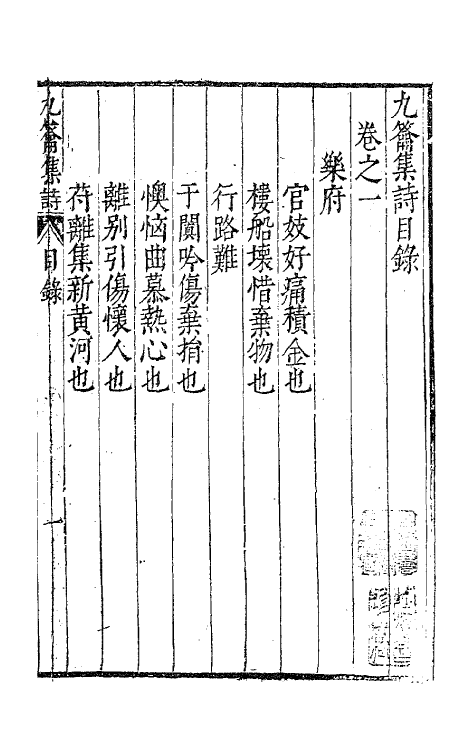 九籥集詩目錄
卷之一
樂府
官妓好痛積金也
樓船壞惜棄物也
行路難
于闐吟傷棄捐也
懊惱曲慕熱心也
離别引傷懷人也
符離集新黄河也
九籥集詩 目錄 一